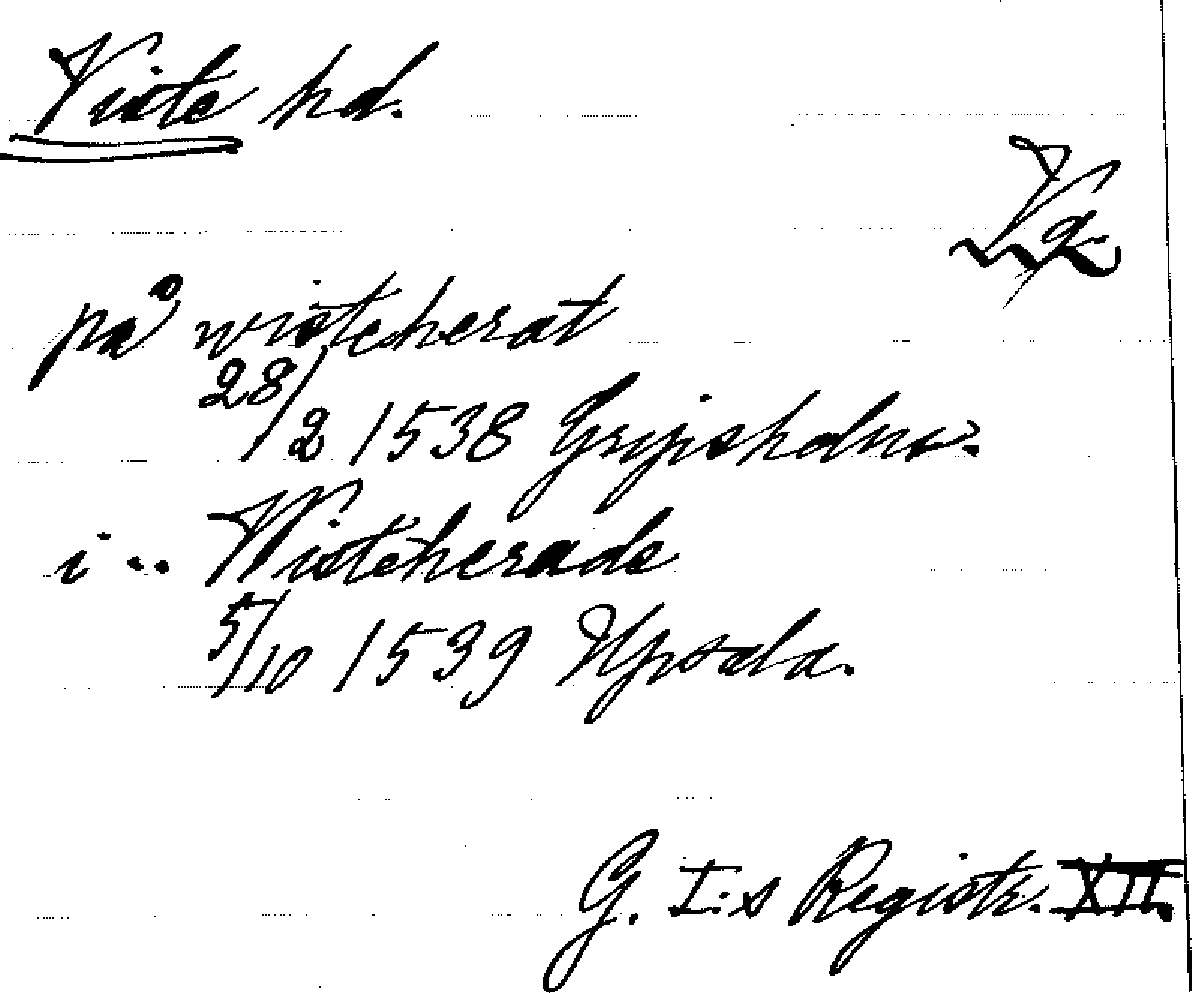 Viste hd.
Vg.
på wisteherat
28/2 1538 Gripsholm.
i .. Wisteherade
5/10 1539 Upsala.
G. I:s Registr. XII.